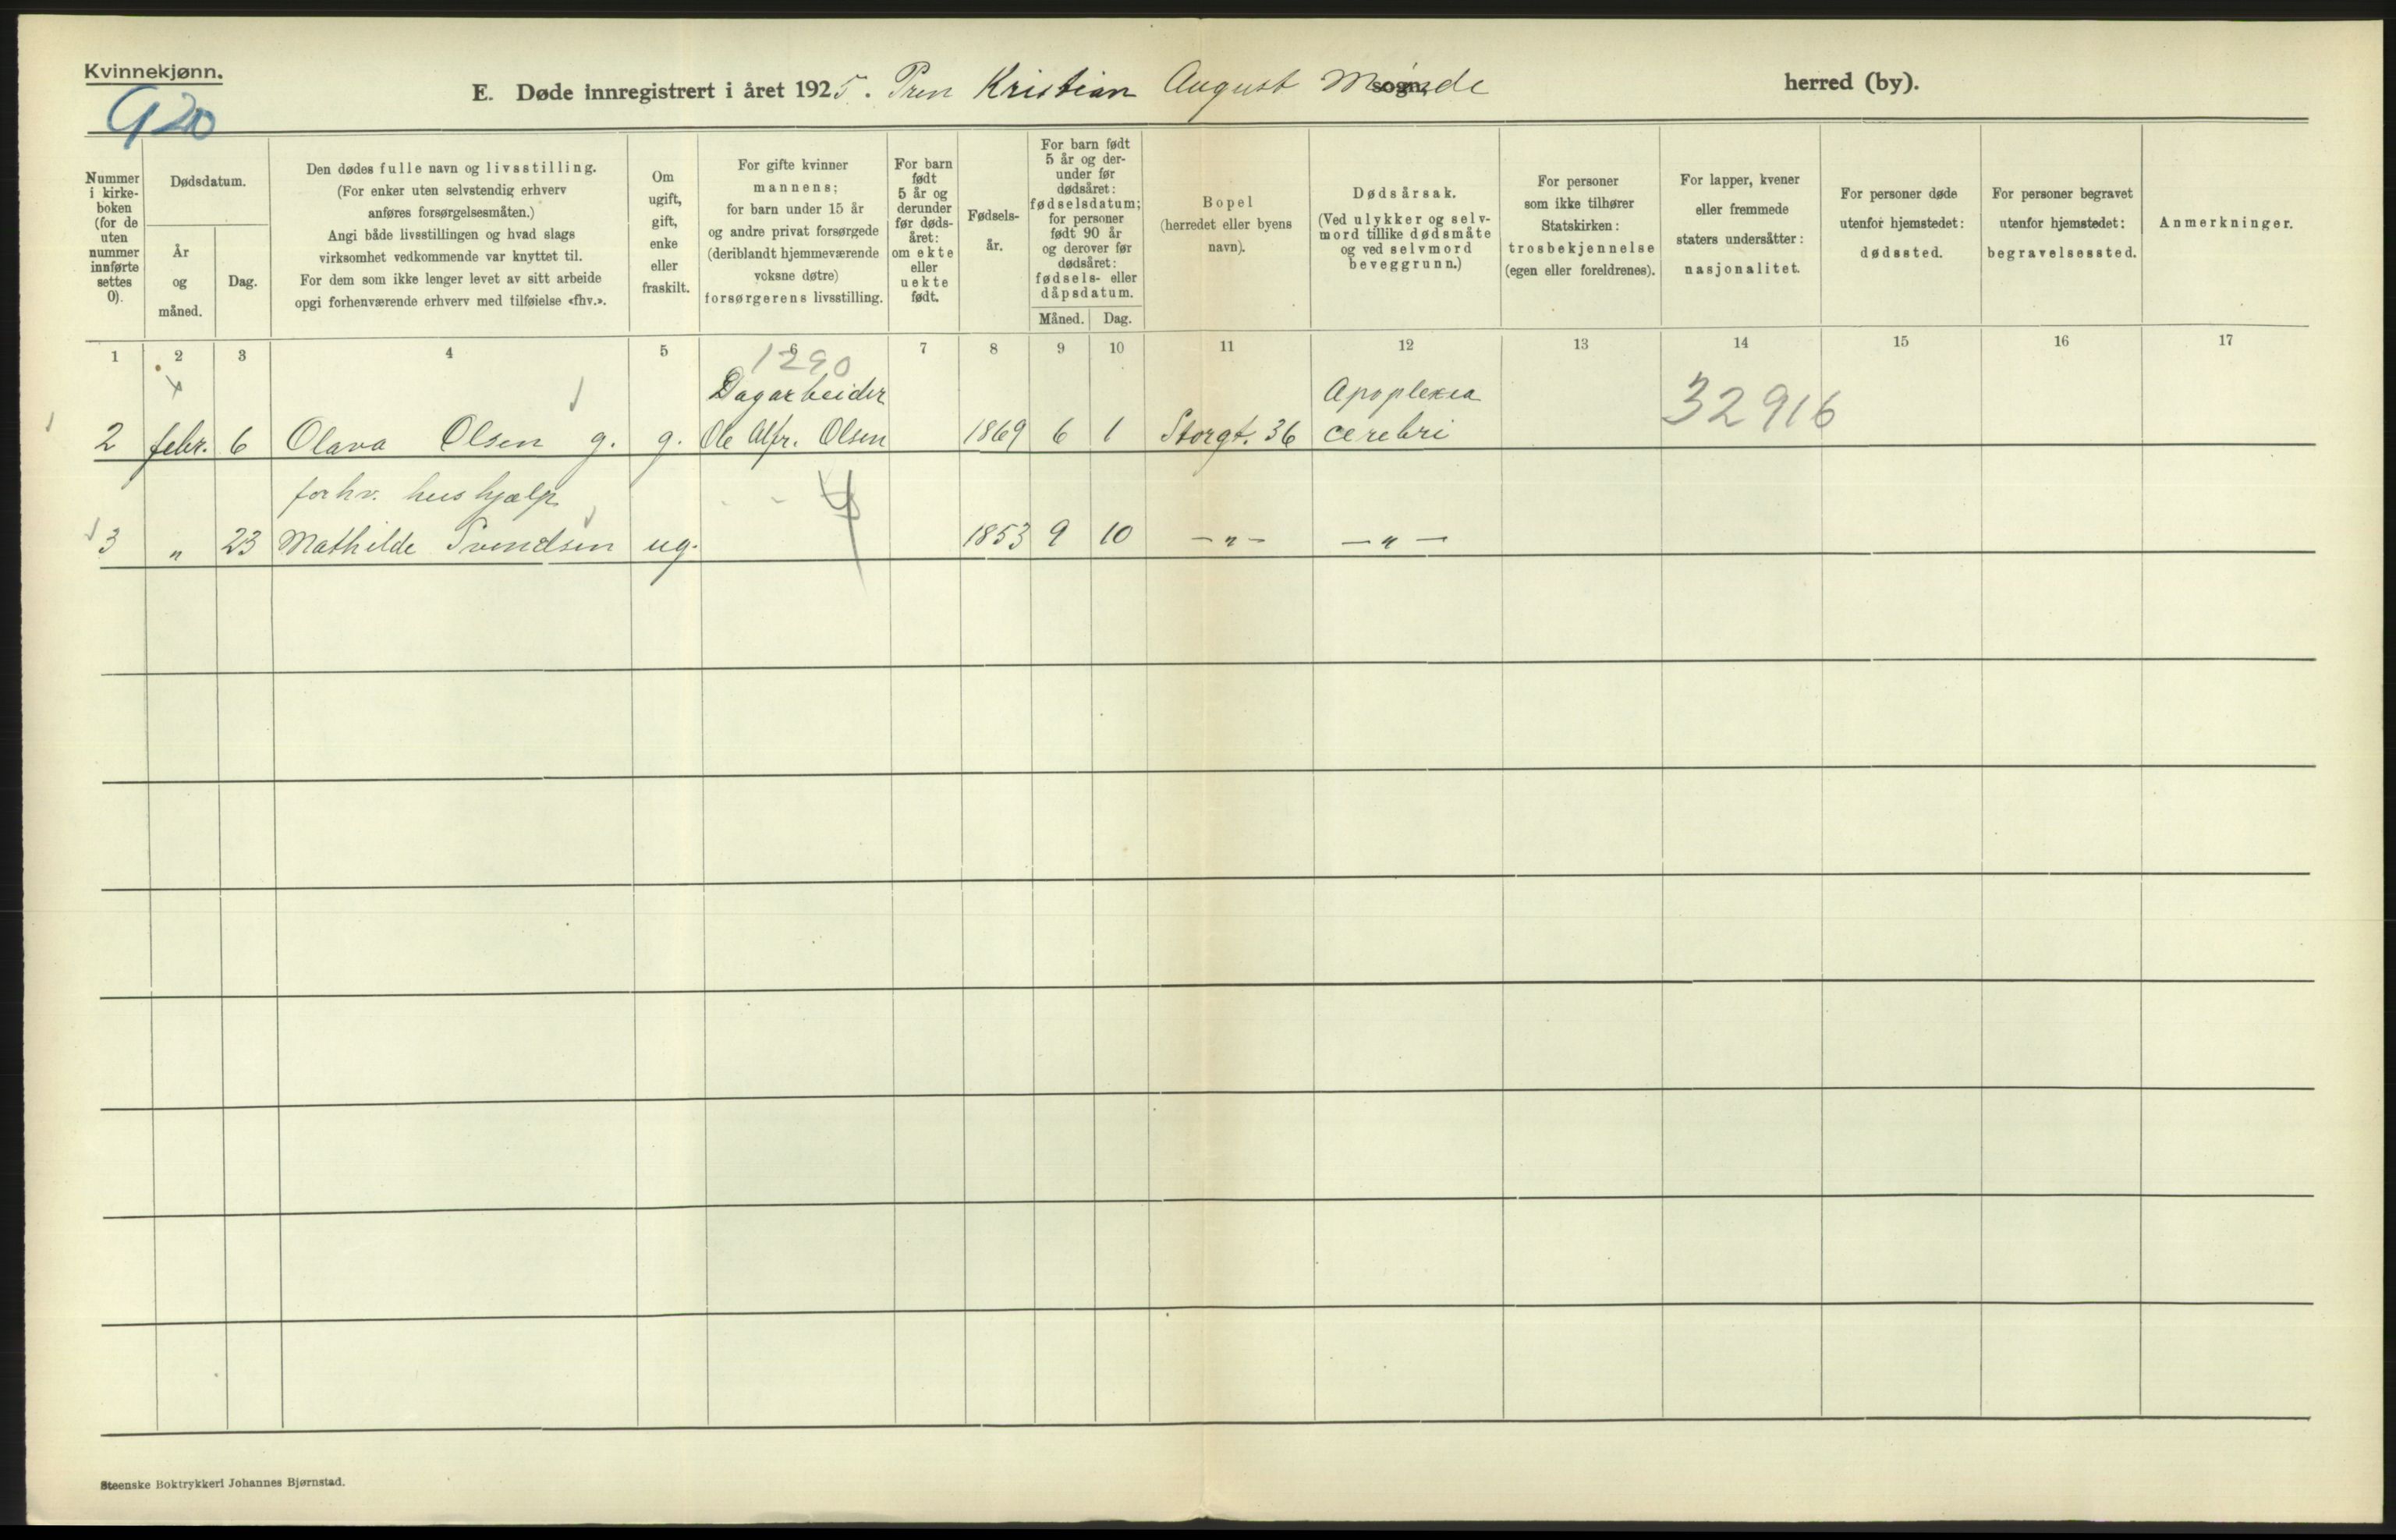 Kvinnekjønn.
920
E. Døde innregistrert i året 1925. Kristian August sogn, herred (by).
Nummer
i kirke-
boken
(for de
uten
nummer
innførte
settes
0).
Dødsdatum.
År
og
måned.
Dag.
Den dødes fulle navn og livsstilling.
(For enker uten selvstendig erhverv
anføres forsørgelsesmåten.)
Angi både livsstillingen og hvad slags
virksomhet vedkommende var knyttet til.
For dem som ikke lenger levet av sitt arbeide
opgi forhenværende erhverv med tilføielse «fhv.».
Om
ugift,
gift,
enke
eller
fraskilt.
For gifte kvinner
mannens;
for barn under 15 år
og andre privat forsørgede
(deriblandt hjemmeværende
voksne døtre)
forsørgerens livsstilling.
For barn
født
5 år og
derunder
før døds-
året:
om ekte
eller
uekte
født.
Fødsels-
år.
For barn født
5 år og der-
under før
dødsåret:
fødselsdatum;
for personer
født 90 år
og derover før
dødsåret:
fødsels- eller
dåpsdatum.
Måned. Dag.
Bopel
(herredet eller byens
navn).
Dødsårsak.
(Ved ulykker og selv-
mord tillike dødsmåte
og ved selvmord
beveggrunn.)
For personer
som ikke tilhører
Statskirken:
trosbekjennelse
(egen eller foreldrenes).
For lapper, kvener
eller fremmede
staters undersåtter:
nasjonalitet.
For personer døde
utenfor hjemstedet:
dødssted.
For personer begravet
utenfor hjemstedet:
begravelsessted.
Anmerkninger.
1 2 3 4 5 6 7 8 9 10 11 12 13 14 15 16 17
1290
Dagarbeider Apoplexia 32916
2 febr. 6 Olava Olsen g. g. Ole Alfr. Olsen 1869 6 1 Storgt. 36 cerebri
forhv. hushjælp
3 " 23 Mathilde Svendsen ug. 1853 9 10 -"- -"-
Steenske Boktrykkeri Johannes Bjørnstad.